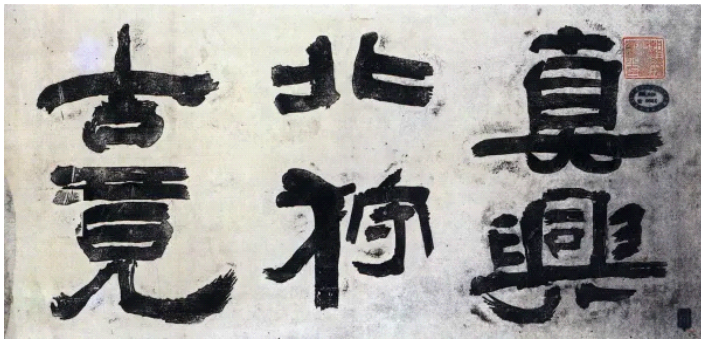 真興
北狩
古竟